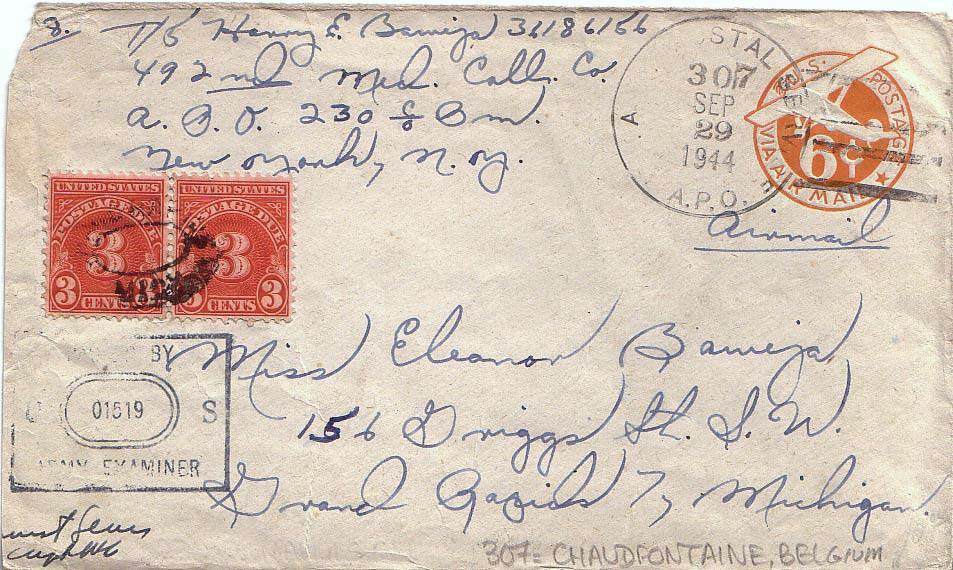 8.
T/5 Harry E. Bameja 36186156
492nd Med. Coll. Co.
A. P. O. 230 c/o P.m.
New York, N.Y.
STAL
307
SEP
29
1944
A
A.P.O.
U.S. POSTAGE
6¢
VIA AIR MAIL
Airmail
UNITED STATES
POSTAGE DUE
3
3 CENTS
UNITED STATES
POSTAGE DUE
3
3 CENTS 3
BY
01519
S
ARMY EXAMINER
Miss Eleanor Bameja
156 Griggs St. S.W.
Grand Rapids 7, Michigan.
307 = CHAUDFONTAINE, BELGIUM